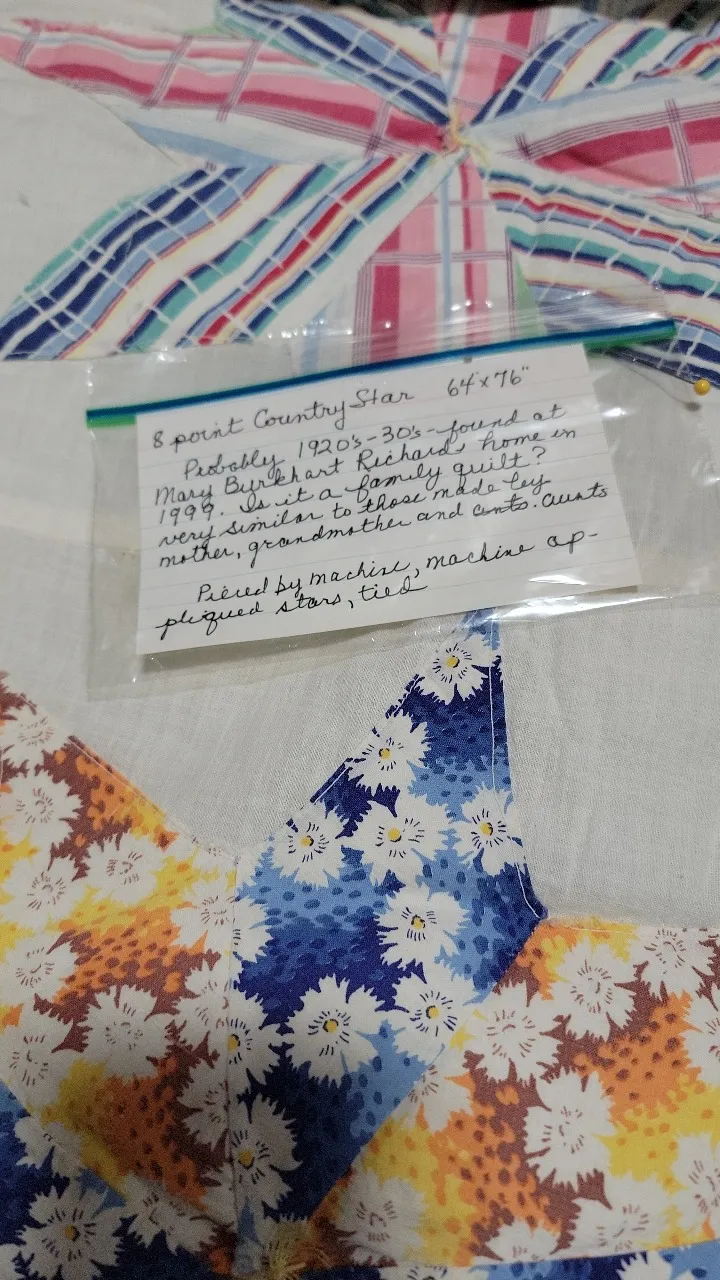 8 point Country Star 64" x 76"
Probably 1920's-30's - found at
Mary Burkhart Richards home in
1999. Is it a family quilt?
very similar to those made by
mother, grandmother and aunts. aunts
Pieced by machine, machine ap-
pliqued stars, tied